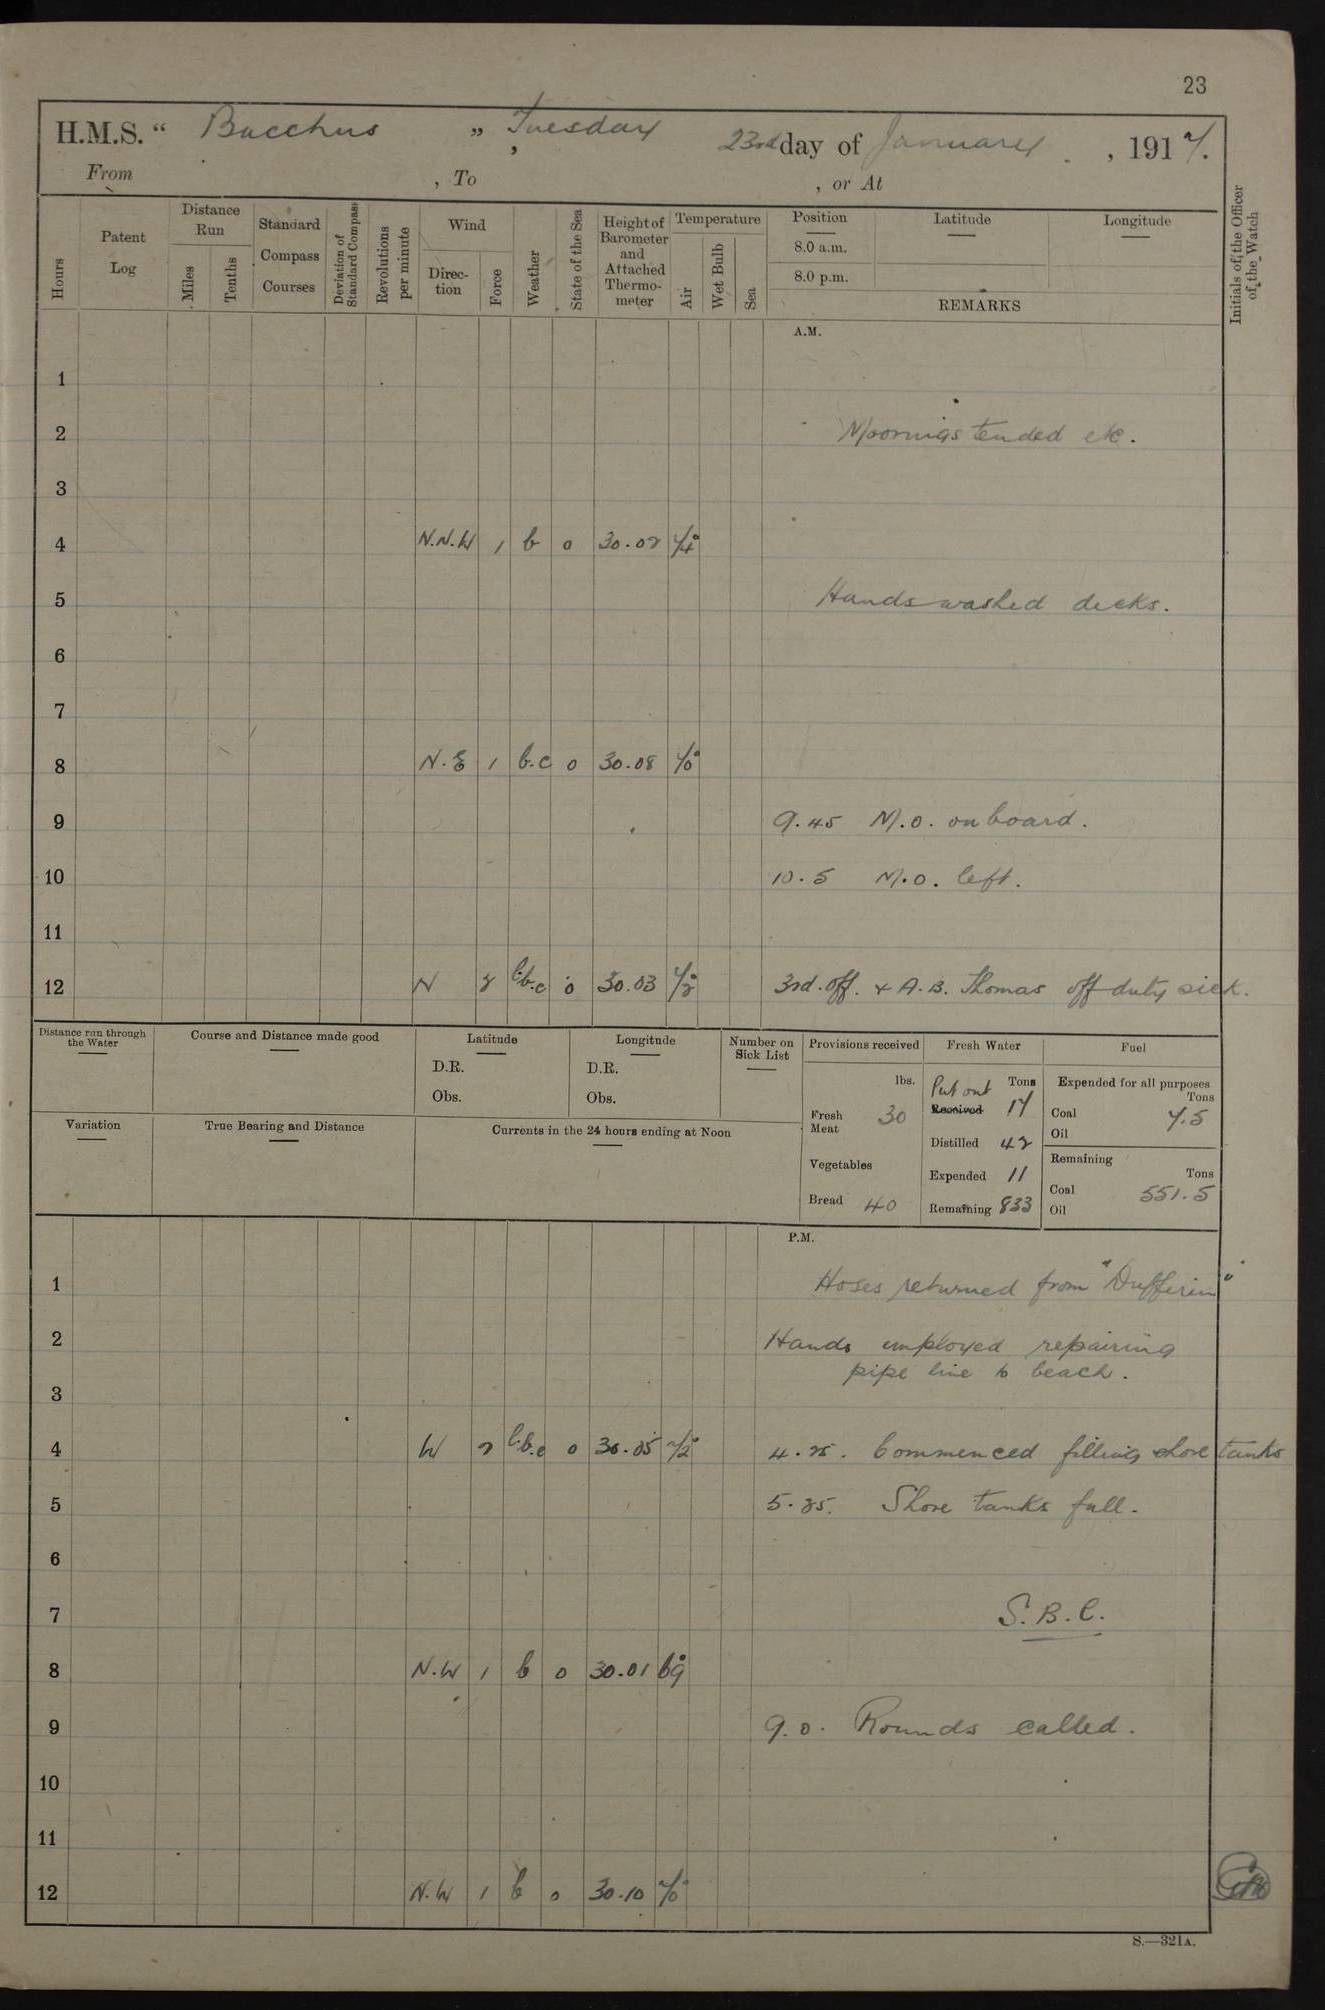 23
H.M.S. “ Bacchus ” , Tuesday 23rd day of January , 1917.
From , To , or At
Hours
Patent Log
Distance Run
Miles
Tenths
Standard Compass Courses
Deviation of Standard Compass
Revolutions per minute
Wind
Direction
Force
Weather
State of the Sea
Height of Barometer and Attached Thermometer
Temperature
Air
Wet Bulb
Sea
Position Latitude Longitude
8.0 a.m.
8.0 p.m.
REMARKS
Initials of the Officer of the Watch
A.M.
1
2 Moorings tended etc.
3
4 N.N.W 1 b 0 30.02
5 Hands washed decks.
6
7
8 N.E 1 b.c 0 30.08 70°
9 9.45 M.O. on board.
10 10.5 M.O. left.
11
12 N 2 b.c 0 30.03 72° 3rd. off. & A.B. Thomas off duty sick.
Distance run through the Water
Course and Distance made good
Latitude
D.R.
Obs.
Longitude
D.R.
Obs.
Number on Sick List
Provisions received
lbs.
Fresh Meat 30
Vegetables
Bread 40
Fresh Water
Tons
Put out
Received 17
Distilled 42
Expended 11
Remaining 833
Fuel
Expended for all purposes
Tons
Coal 7.5
Oil
Remaining
Tons
Coal 551.5
Oil
Variation
True Bearing and Distance
Currents in the 24 hours ending at Noon
P.M.
1 Hoses returned from "Dufferin"
2 Hands employed repairing
pipe line to beach.
3
4 W 2 b.c 0 30.05 72° 4.25. Commenced filling shore tanks
5 Shore tanks full.
6
7 S.B.C.
8 N.W 1 b 0 30.01 69°
9 9.0. Rounds called.
10
11
12 N.W 1 b 0 30.10 70°
S.—321A.